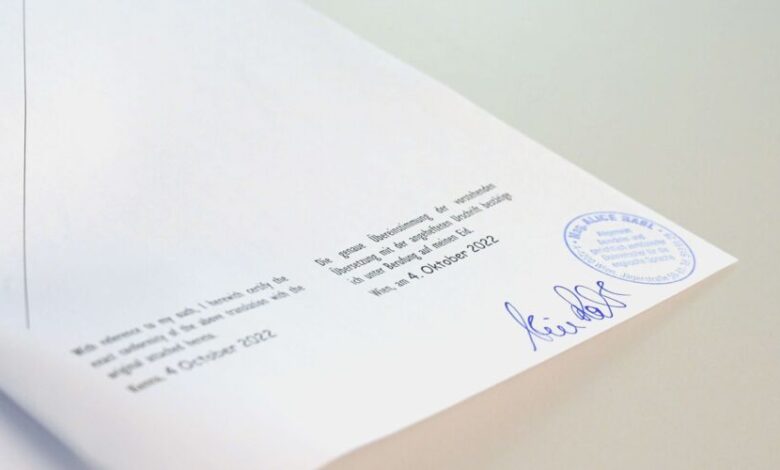 With reference to my oath, I herewith certify the
exact conformity of the above translation with the
original attached hereto.
Vienna, 4 October 2022
Die genaue Übereinstimmung der vorstehenden
Übersetzung mit der angehefteten Urschrift bestätige
ich unter Berufung auf meinen Eid.
Wien, am 4. Oktober 2022
Mag. ALICE RABL
Allgemein
beeidete und
gerichtlich zertifizierte
Dolmetscher für die
englische Sprache